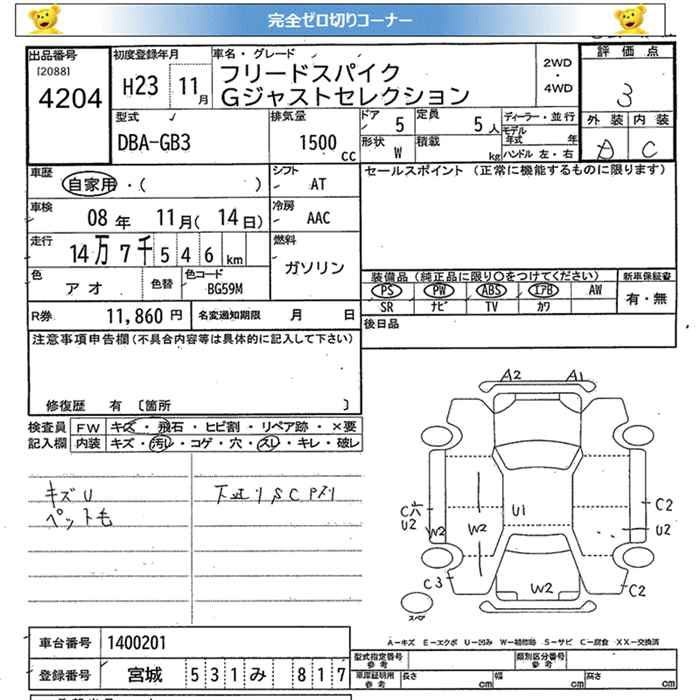 完全ゼロ切りコーナー
出品番号 初度登録年月 車名・グレード 評価点
[2088]
4204 H23 11月 フリードスパイク 2WD・4WD 3
Gジャストセレクション
型式 排気量 ドア 5 定員 5人 ディーラー・並行 外装 内装
DBA-GB3 1500cc 形状 W 積載 kg モデル年式 年 C
ハンドル 左・右
車歴 自家用・( ) シフト AT セールスポイント (正常に機能するものに限ります)
車検 08年 11月( 14日) 冷房 AAC
走行 14万7千546km 燃料 ガソリン
色 アオ 色替 色コード BG59M 装備品(純正品に限り○をつけてください) 新車保証書
PS PW ABS エアB AW 有・無
SR ナビ TV カワ
R券 11,860円 名変通知期限 月 日 後日品
注意事項申告欄(不具合内容等は具体的に記入して下さい)
修復歴 有 〔箇所 〕
検査員 FW キズ・飛石・ヒビ割・リペア跡・×要
記入欄 内装 キズ・汚レ・コゲ・穴・スレ・キレ・破レ
A2 A1
キズU
ペット毛
U1
C2
U2 W2 W2 U2
C3 W2 C2
スペア
A-キズ E-エクボ U-凹み W-補修跡 S-サビ C-腐食 XX-交換済
車台番号 1400201 型式指定番号 参考 類別区分番号 参考
登録番号 宮城 531み 817 車庫証明用 参考 長さ cm 幅 cm 高さ cm